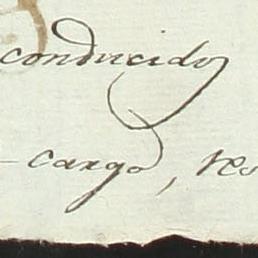 conducido
cargo, res